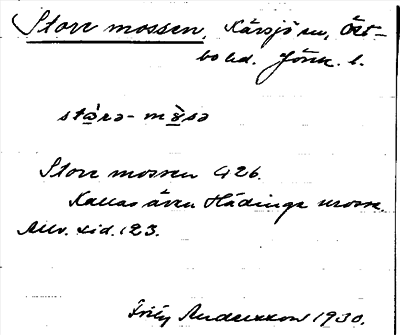 Storr mossen, Kärsjö sn, Öst-
bo hd. Jönk. l.
stårə-mòsə
Storr mossen G 26.
Kallas även Hädinge mosse.
Allv. sid. 123.
Frity Andersson 1930.